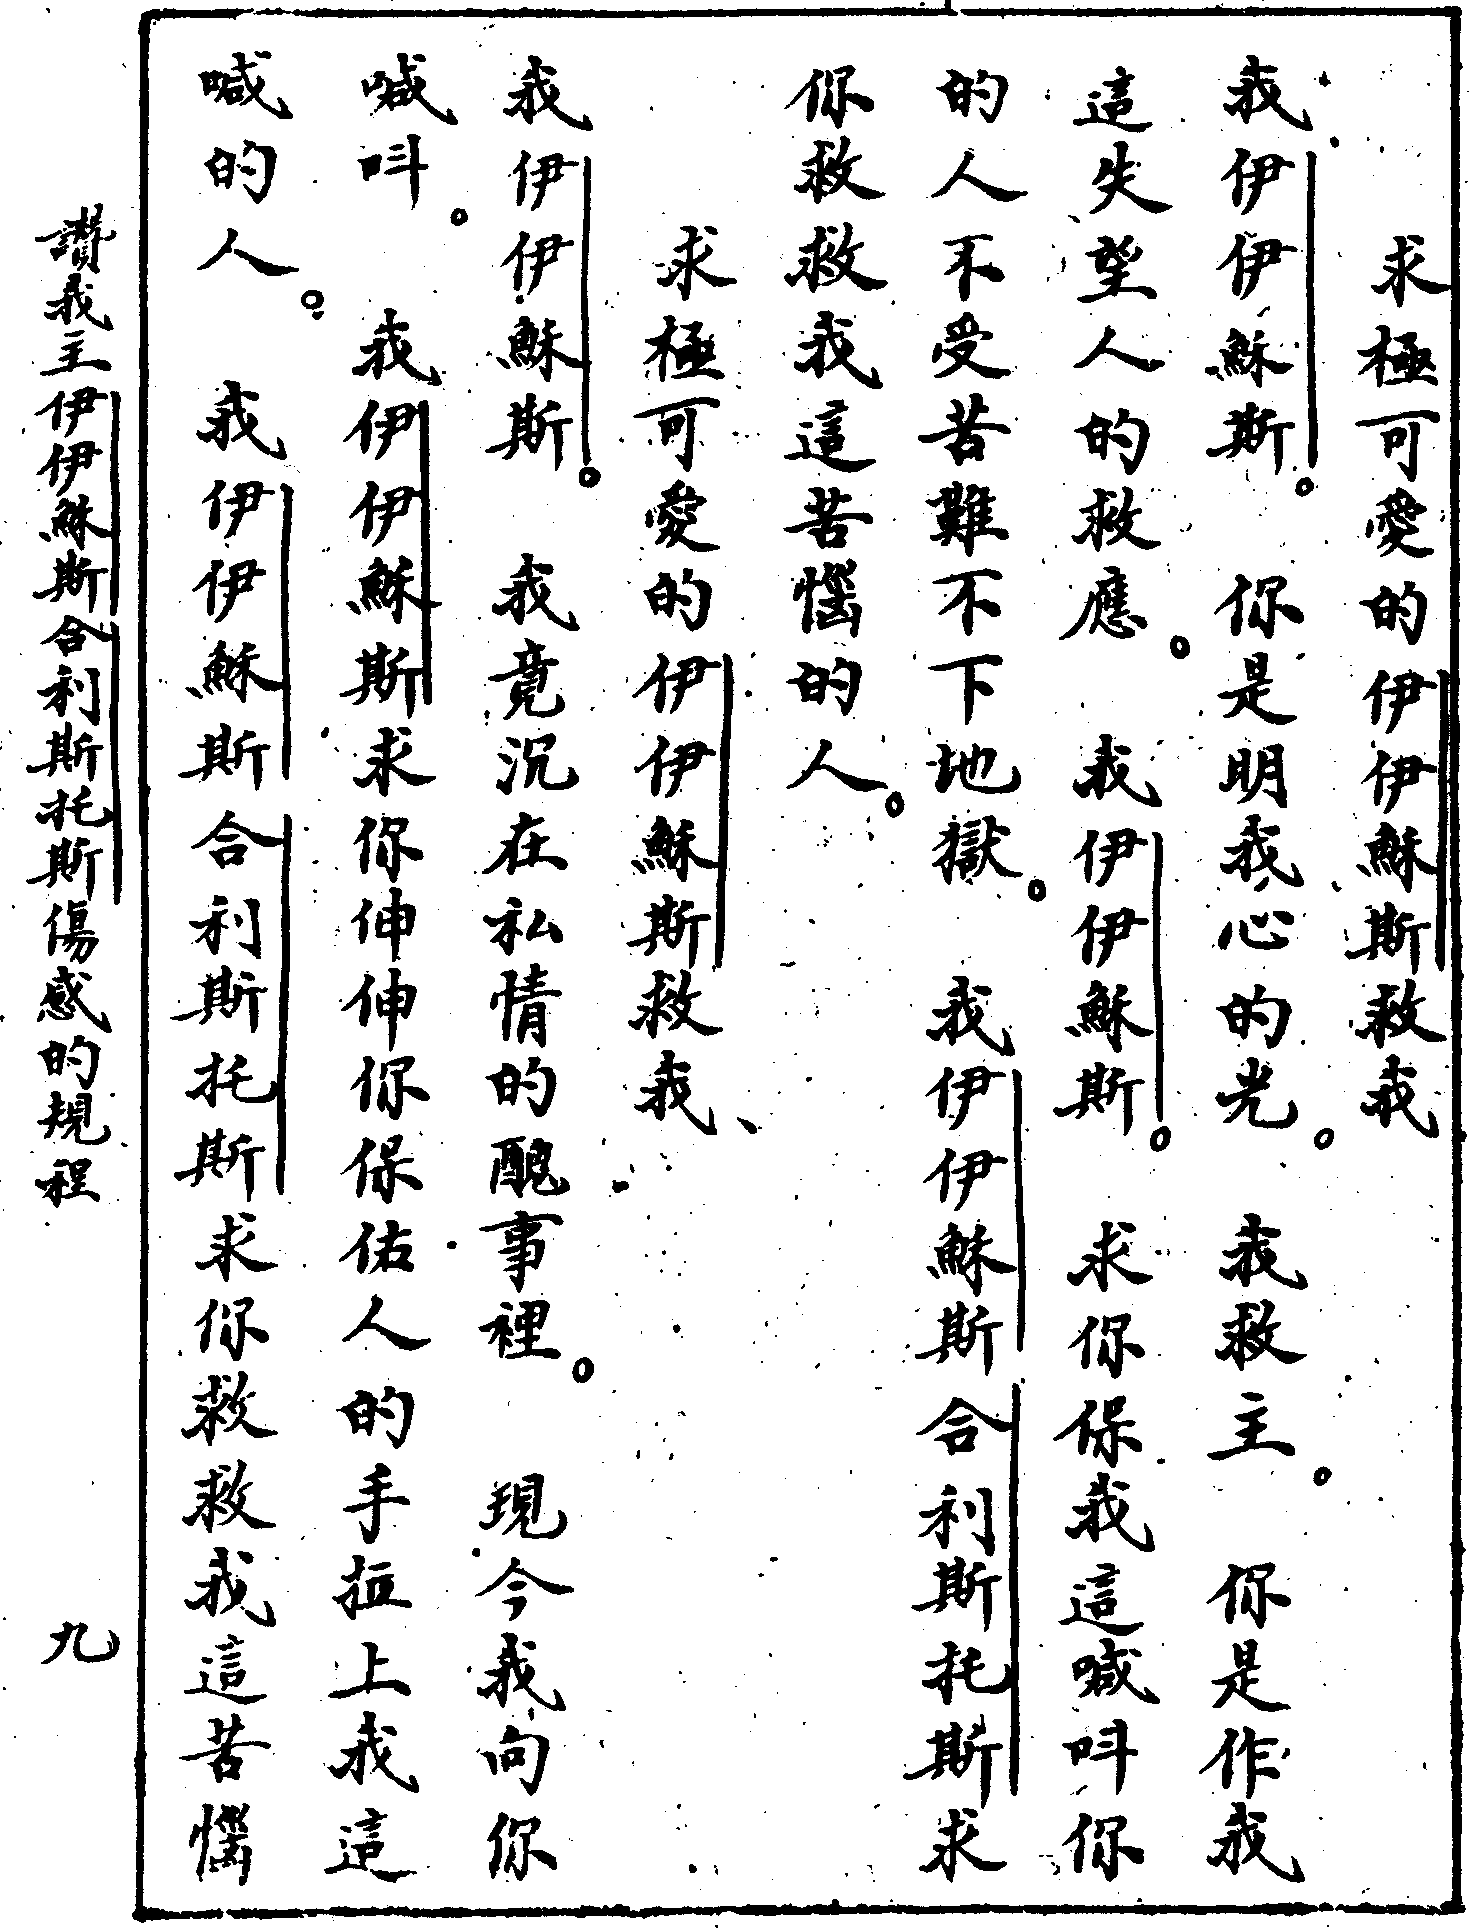 求極可愛的伊伊穌斯救我
我伊伊穌斯。你是明我心的光。我救主。你是作我
這失望人的救應。我伊伊穌斯。求你保我這喊呌你
的人不受苦難不下地獄。我伊伊穌斯合利斯托斯求
你救救我這苦惱的人。
求極可愛的伊伊穌斯救我、
我伊伊穌斯。我竟沉在私情的醜事裡。現今我向你
喊呌。我伊伊穌斯求你伸伸你保佑人的手拉上我這
喊的人。我伊伊穌斯合利斯托斯求你救救我這苦惱
讚我主伊伊穌斯合利斯托斯傷感的規程
九